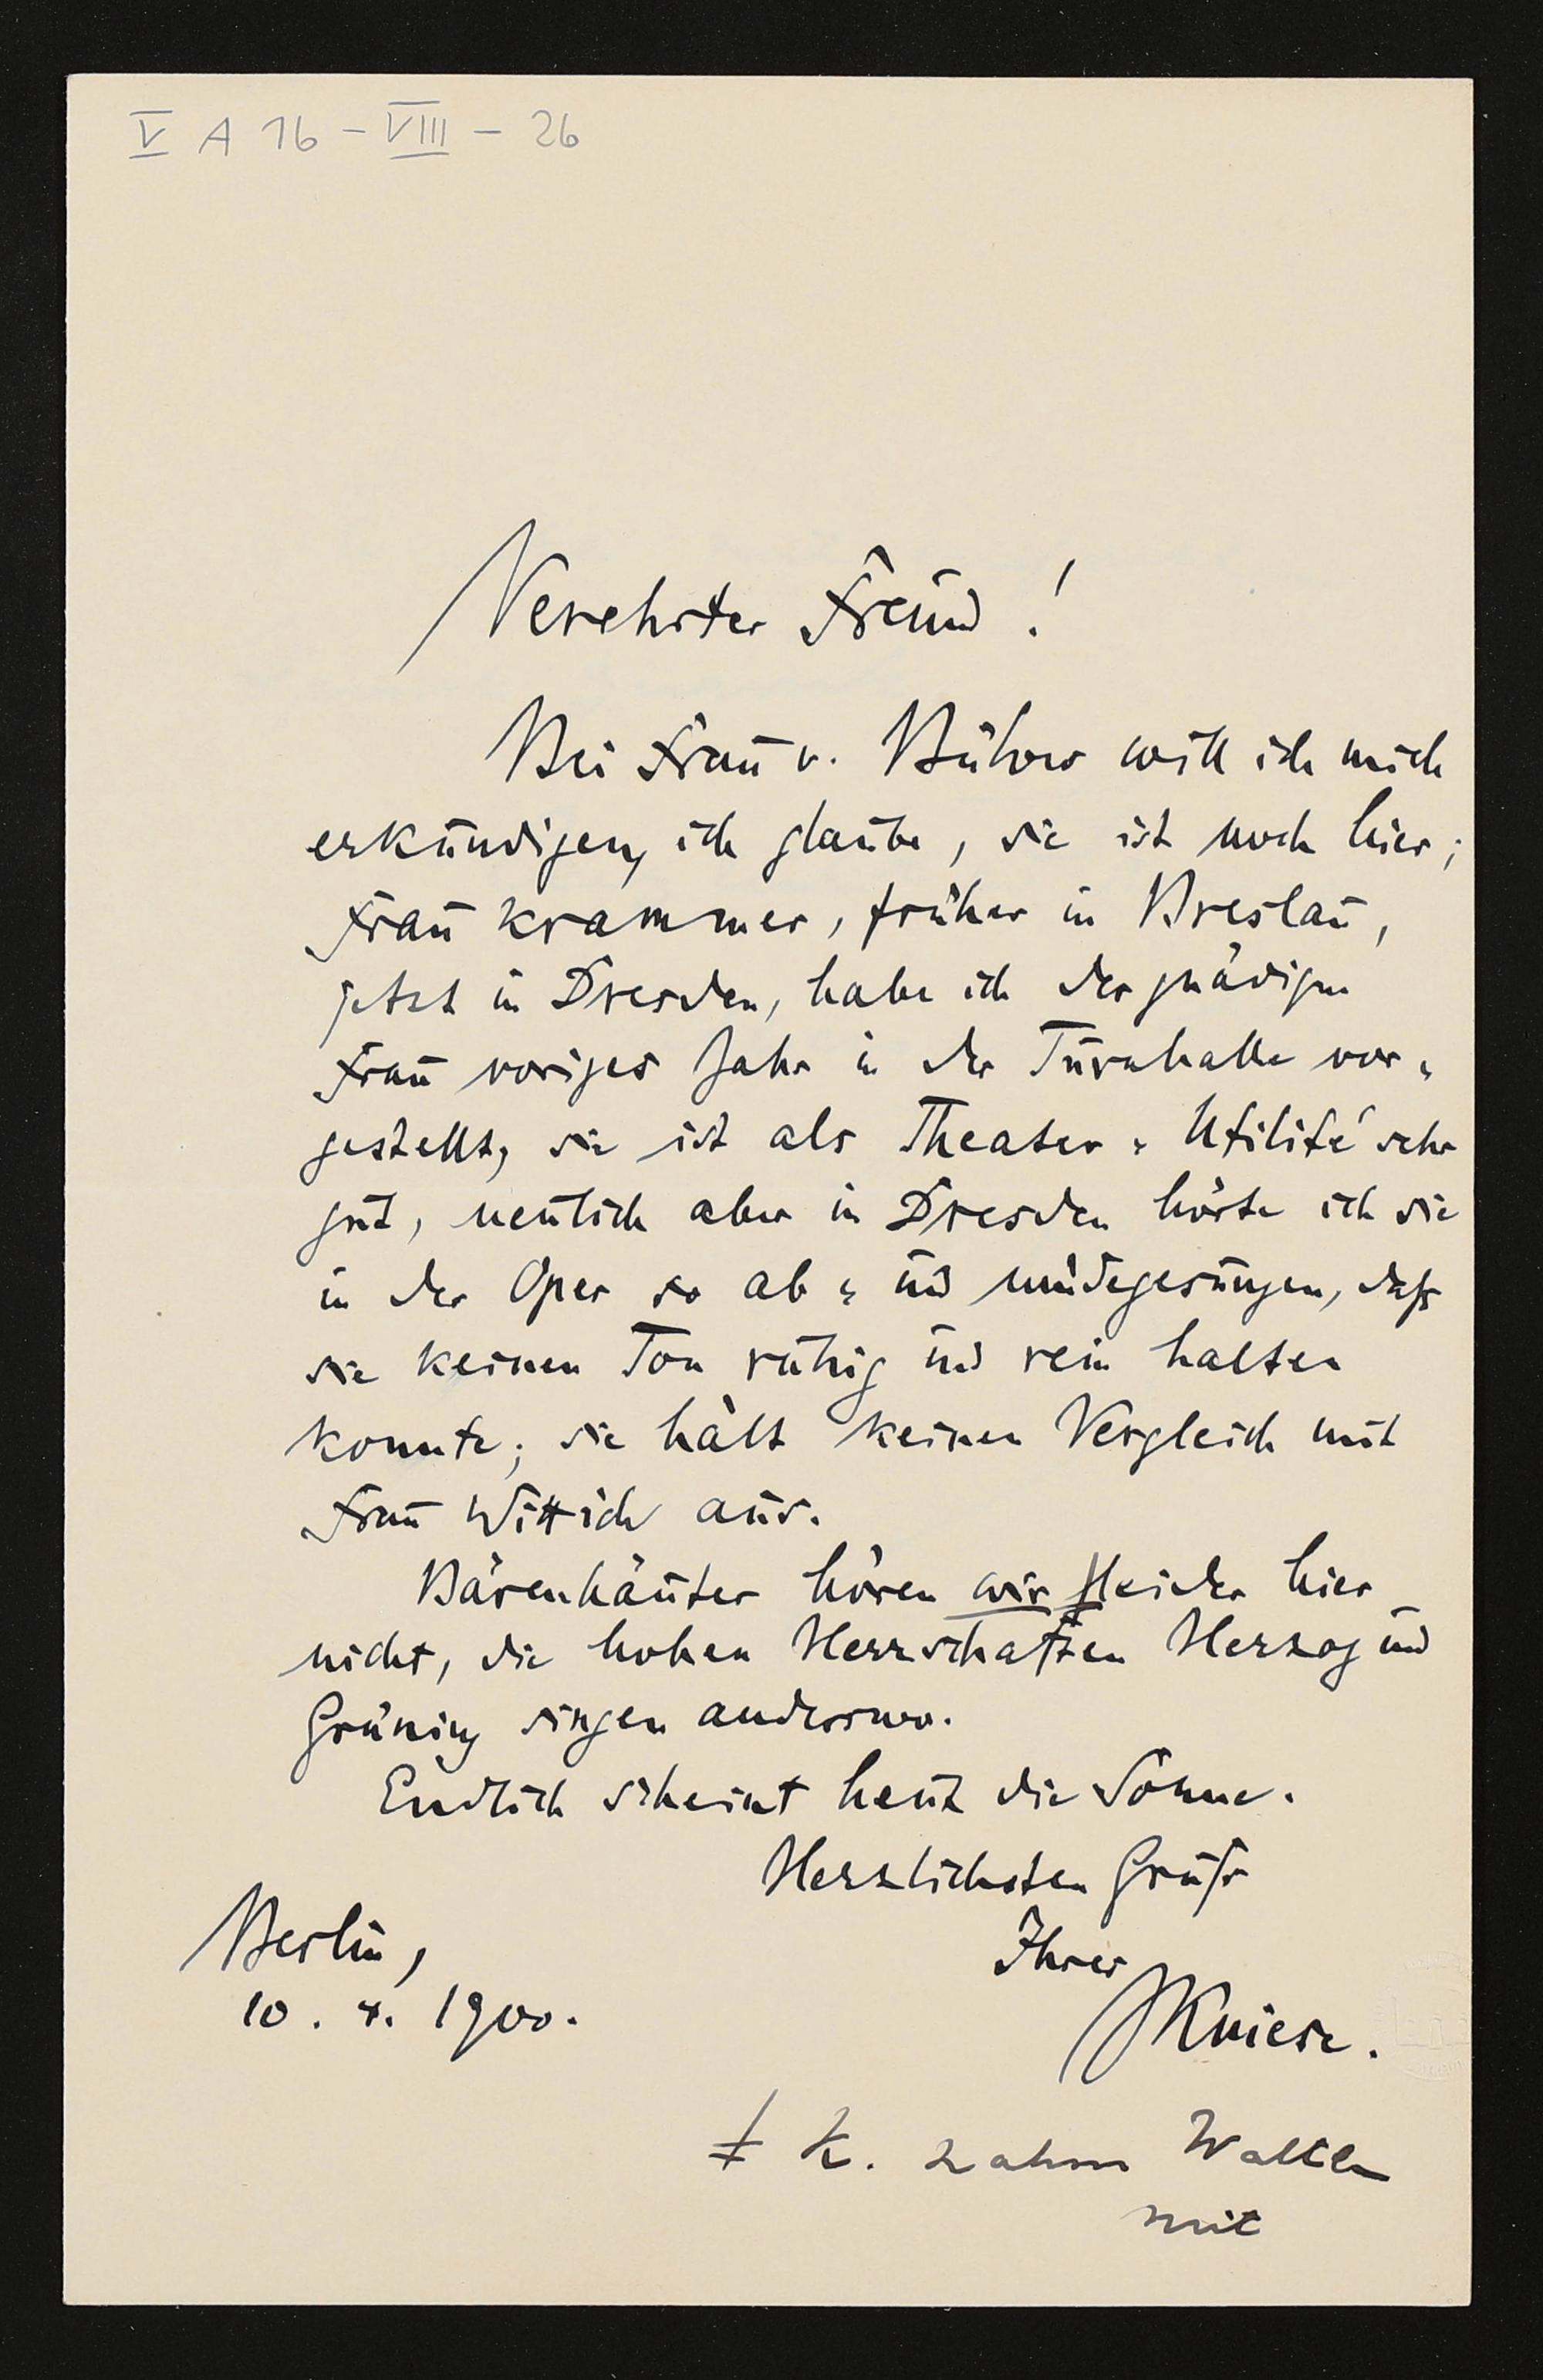 V A 16 - VIII - 26
Verehrter Freund!
Bei Frau v. Bülow will ich mich
erkundigen, ich glaube, sie ist noch hier;
Frau Krammer, früher in Breslau,
jetzt in Dresden, habe ich der gnädigen
Frau voriges Jahr in der Turnhalle vor-
gestellt, sie ist als Theater-Utilité sehr
gut, neulich aber in Dresden hörte ich sie
in der Oper so ab- und müdegesungen, daß
sie keinen Ton ruhig und rein halten
konnte; sie hält keinen Vergleich mit
Frau Wittich aus.
Bärenhäuter hören wir ǂ leider hier
nicht, die hohen Herrschaften Herzog und
Grüning singen anderswo.
Endlich scheint heut die Sonne.
Herzlichsten Gruß
Ihres
JKniese.
Berlin,
10. 4. 1900.
ǂ K. nahm Walter
mit